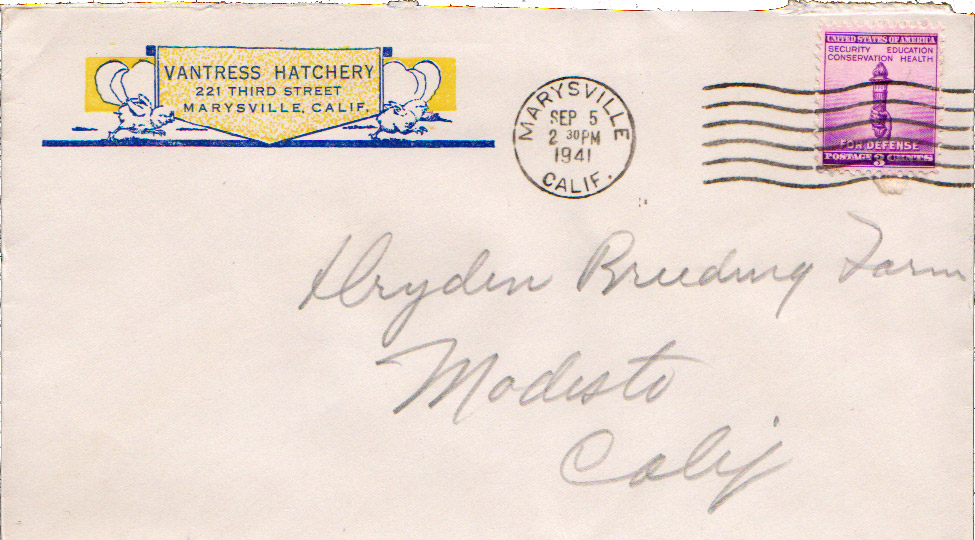 VANTRESS HATCHERY
221 THIRD STREET
MARYSVILLE, CALIF.
MARYSVILLE
SEP 5
2 30 PM
1941
CALIF.
UNITED STATES OF AMERICA
SECURITY EDUCATION
CONSERVATION HEALTH
FOR DEFENSE
POSTAGE 3 CENTS
Dryden Breeding Farm
Modesto
Calif